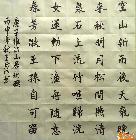 空山新雨後天氣晚
來秋明月松間照清
泉石上流竹喧歸浣
女蓮動下漁舟隨意
春芳歇王孫自可留
山居秋暝
丙申年秋